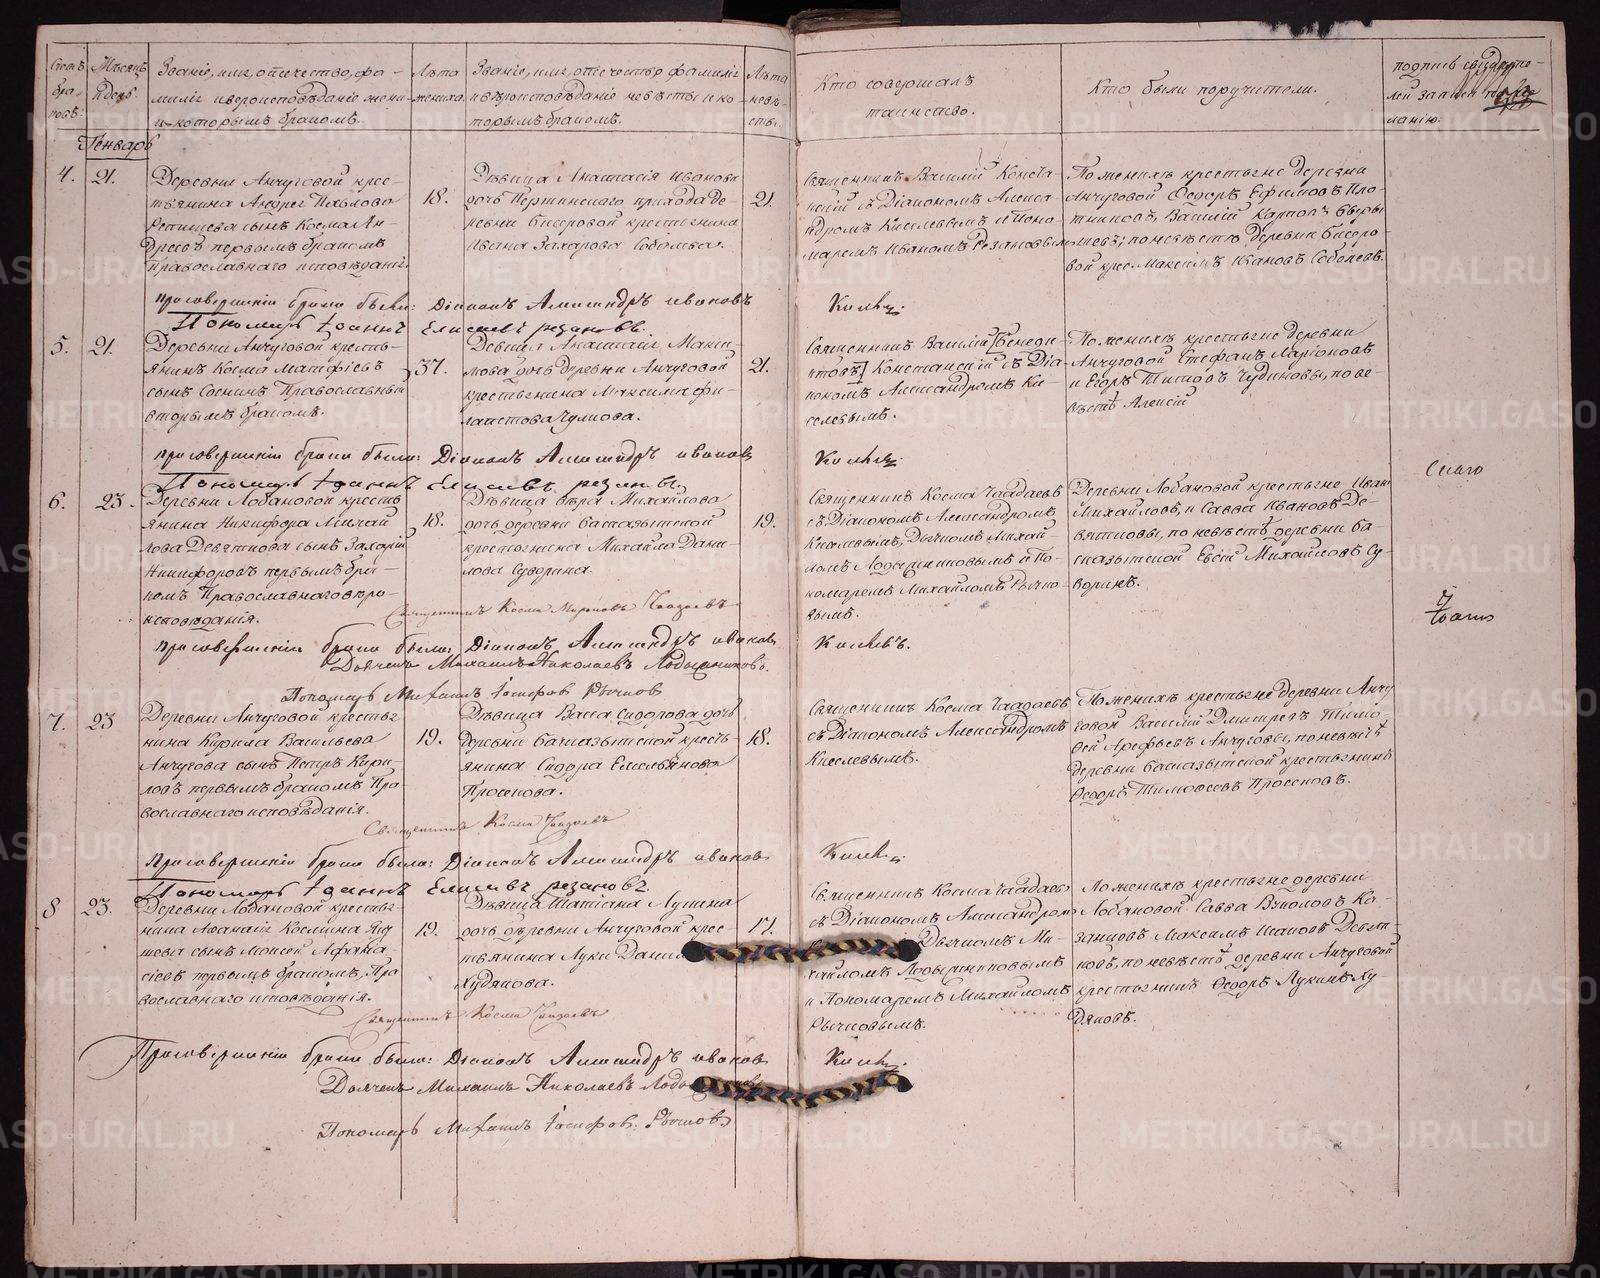 Званіе, имя, отчество, фа-
милія и вероисповѣданіе жени-
и которымъ бракомъ.
Лѣта
жениха.
Званіе, имя, отчество фамилія
и вѣроисповѣданіе невѣсты и ко-
торымъ бракомъ.
Лѣта
невѣ-
сты.
Кто совершалъ
таинство.
Кто были поручители.
Генварь
4. 21.
Деревни Анчуговой крес-
тьянина Андрея Павлова
сынъ Косма Ан-
дреевъ первымъ бракомъ
Православнаго исповѣданія.
18.
Дѣвица Анастасія Иванова
дочь прихода де-
ревни Бисеровой крестьянина
Ивана Захарова Соболева.
21.
Священникъ Василій Конста-
нскій съ Діакономъ Алекса-
ндромъ Киселевымъ и Поно-
маремъ Иваномъ Резановымъ
По женихѣ крестьяне деревни
Анчуговой Ѳедоръ Ефимовъ Пло-
тниковъ, Василій Карповъ
по невѣстѣ деревни Бисеро-
вой крес. Максимъ Ивановъ Соболевъ.
при совершеніи брака были: Діаконъ Александръ Ивановъ
Пономарь Іоаннъ Елисеевъ Резановъ.
5. 21.
Деревни Анчуговой кресть-
янинъ Косма Матфіевъ
сынъ Православный
вторымъ бракомъ.
37.
Девица Анастасія Макси-
мова дочь деревни Анчуговой
крестьянина Максима Фи-
лаптова Чулкова.
21.
Священникъ Василій [Бенеди-
ктовъ] Констанскій съ Діа-
кономъ Александромъ Ки-
селевымъ.
По женихѣ крестьяне деревни
Анчуговой Стефанъ Ларіоновъ
и Егоръ Титовъ Чудиновы, по не-
вѣстѣ Алексій
при совершеніи брака были: Діаконъ Александръ Ивановъ
Пономарь Іоаннъ Елисеевъ Резановъ.
6. 23.
Деревни Лобановой кресть
янина Никифора Михай
лова Девяткова сынъ Захарій
Никифоровъ первымъ бра-
комъ Православнаго вѣро-
исповѣданія.
18.
Дѣвица Вѣра Михайлова
дочь деревни Басказыкской
крестьянина Михайла Дани-
лова Суворина.
19.
Священникъ Косма Чаадаевъ
съ Діакономъ Александромъ
Киселевымъ, Дьячкомъ Михай-
ломъ Ладыжниковымъ и По-
номаремъ Михайломъ Рычко-
вымъ.
Деревни Лобановой крестьяне Иванъ
Михайловъ, и Савва Ивановъ Де-
вятковы, по невѣстѣ деревни Ба-
сказыкской Михайловъ Су-
воринъ.
Священникъ Косма Мироновъ Чаадаевъ
при совершеніи брака были: Діаконъ Александръ Ивановъ
Дьячекъ Михаилъ Николаевъ Ладыжниковъ.
Пономарь Михаилъ Іосифовъ Рычковъ
7. 23
Деревни Анчуговой крестья
нина Кирила Васильева
Анчугова сынъ Петръ Кири-
ловъ первымъ бракомъ Пра-
вославнаго исповѣданія.
19.
Дѣвица Васса Сидорова дочь
деревни Басказыкской кресть-
янина Сидора Емельянова
Просекова.
18.
Священникъ Косма Чаадаевъ
съ Діакономъ Александромъ
Киселевымъ.
По женихѣ крестьяне деревни Анчу
говой Василій Дмитревъ Тимо-
ѳей Арефьевъ Анчуговы, по невѣстѣ
деревни Басказыкской крестьянинъ
Ѳедоръ Тимоѳеевъ Просековъ.
Священникъ Косма Чаадаевъ
при совершеніи брака были: Діаконъ Александръ Ивановъ
Пономарь Іоаннъ Елисеевъ Резановъ.
8 23.
Деревни Лобановой крестья-
нина Афанасія Космина
сынъ Моисей Афана-
сіевъ первымъ бракомъ, Пра
вославнаго исповѣданія.
19.
Дѣвица Татіана Лукина
дочь деревни Анчуговой крес-
тьянина Луки Данил
Худякова.
17.
Священникъ Косма Чаадаевъ
съ Діакономъ Александромъ
Дьячкомъ Ми-
хайломъ Ладыжниковымъ
и Пономаремъ Михайломъ
Рычковымъ.
По женихѣ крестьяне деревни
Лобановой Савва Ка-
занцовъ Максимъ Ивановъ Девят-
ковъ, по невѣстѣ деревни Анчуговой
крестьянинъ Ѳедоръ Лукинъ Ху
дяковъ.
Священникъ Косма Чаадаевъ
При совершеніи брака были: Діаконъ Александръ Ивановъ
Дьячекъ Михаилъ Николаевъ
Пономарь Михаилъ Іосифовъ Рычковъ
METRIKI.GASO-URAL.RU